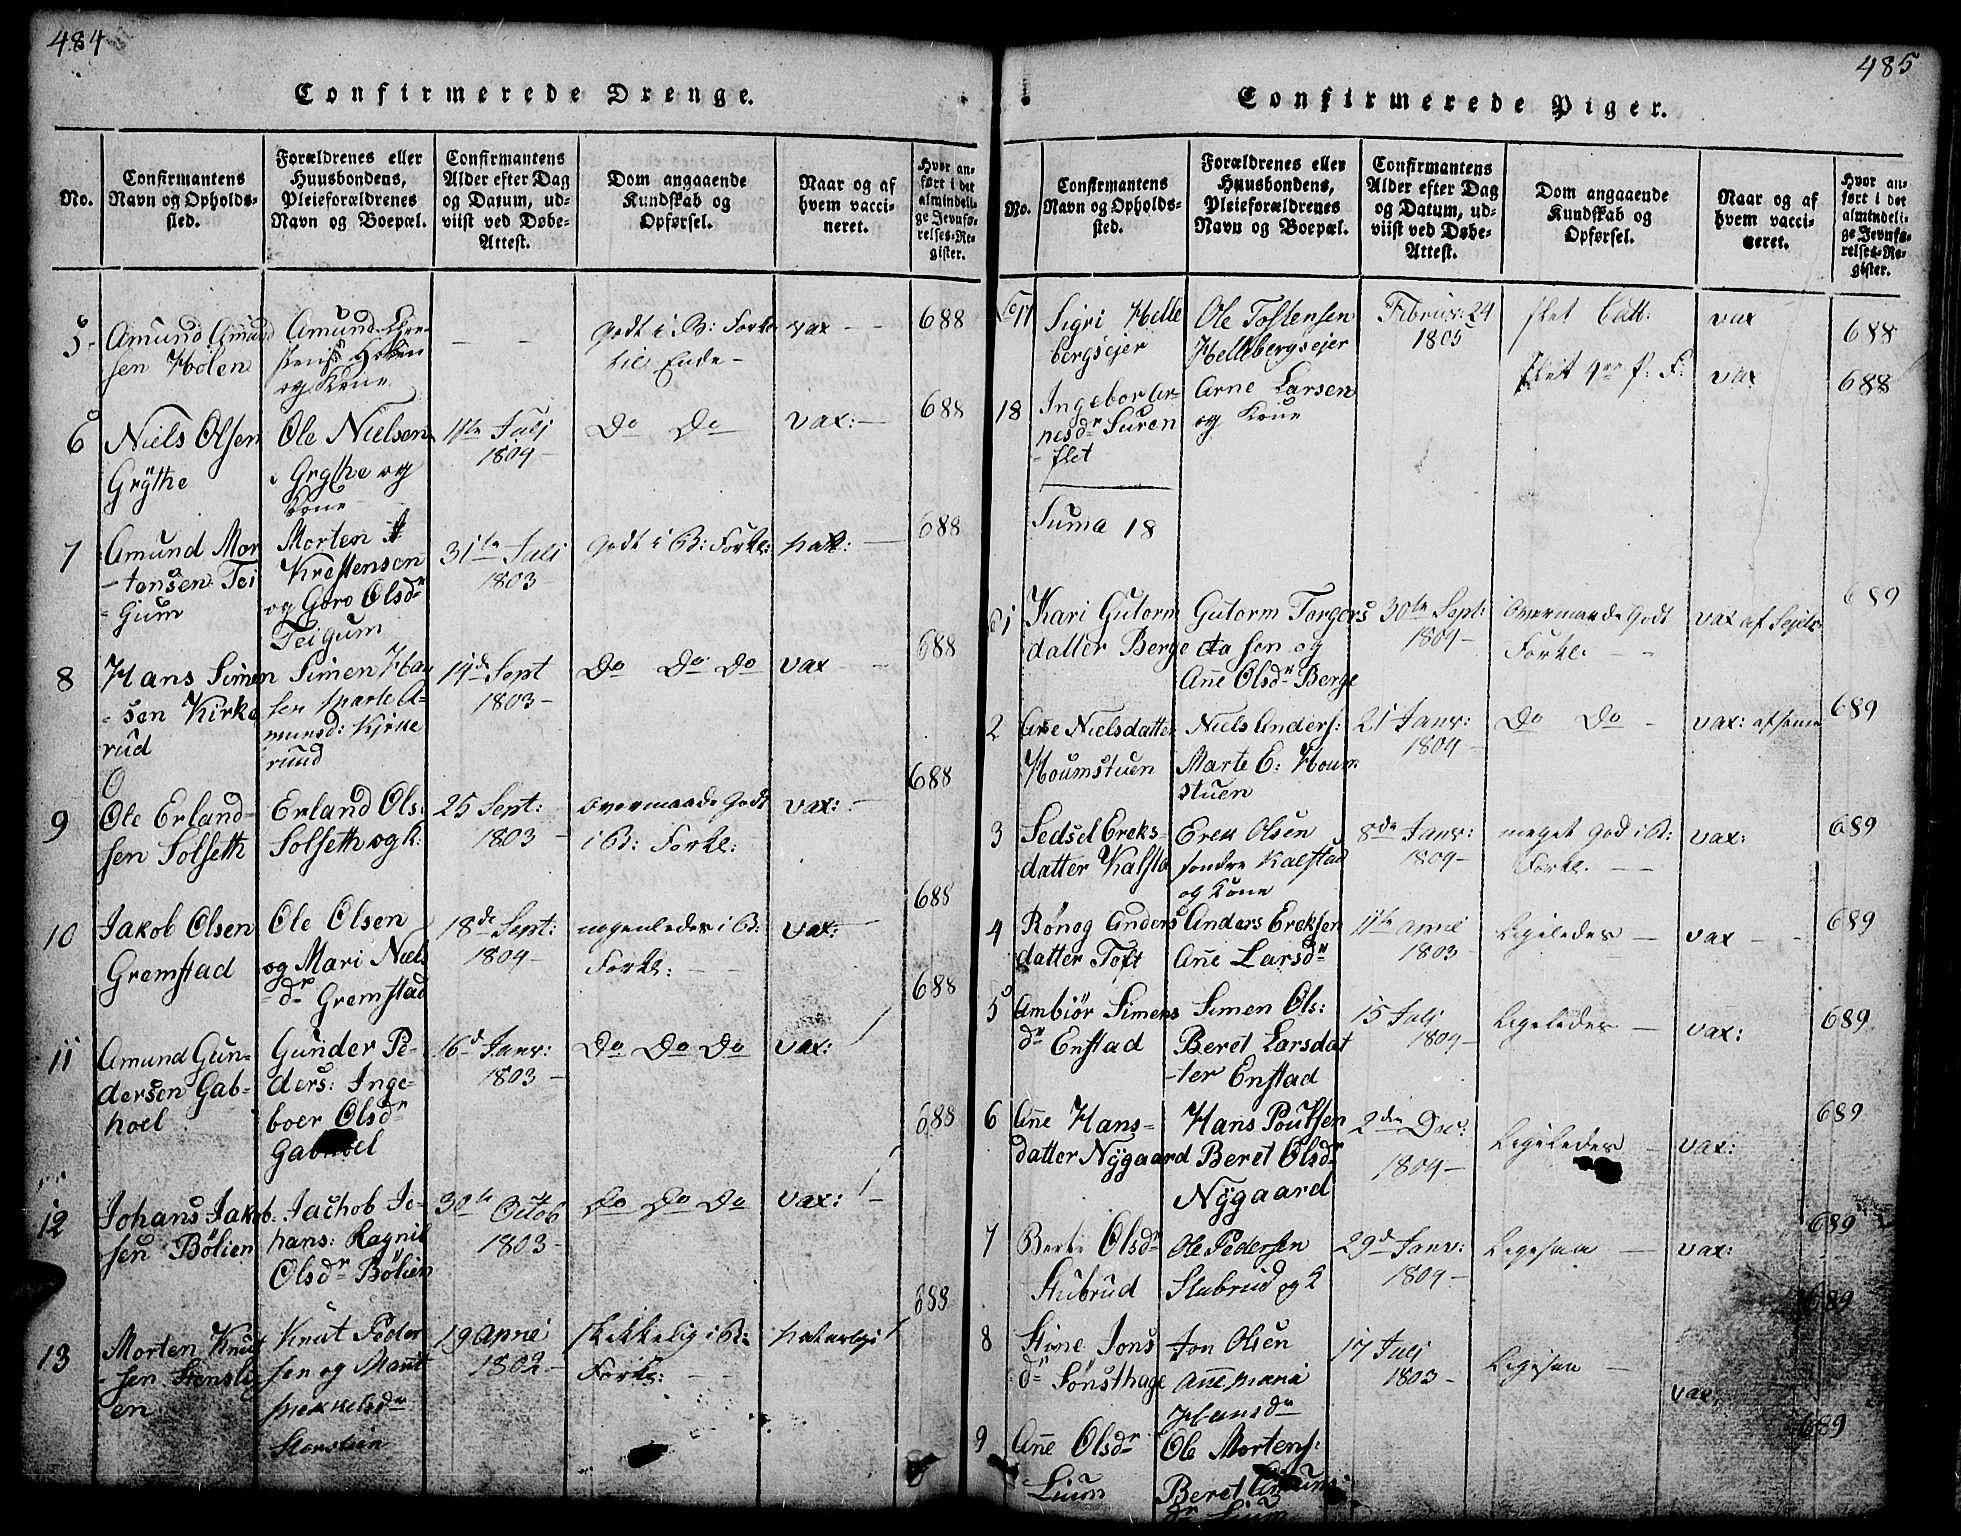 484
Confirmerede Drenge.
No.
Confirmantens
Navn og Opholds-
sted.
Forældrenes eller
Huusbondens,
Pleieforældrenes
Navn og Boepæl.
Confirmantens
Alder efter Dag
og Datum, ud-
viist ved Døbe-
Attest.
Dom angaaende
Kundskab og
Opførsel.
Naar og af
hvem vacci-
neret.
Hvor an-
ført i det
almindeli-
ge Jevnfø-
relses-Re-
gister.
5
Amund Amund
sen Holen
Amund
og Kone
Godt i B: Forkl
til Ende -
vax
688
6
Niels Olsen
Grÿthe
Ole Nielsen
Grythe og
Kone
11te Julj
1804 -
Do Do
vax: -
688
7
Amund Mor
- tensen Tei
- gum
Morten
Krestensen
og Goro Olsdr
Teigum
31te Julj
1803 -
Godt i B: Forkl:
nat:
688
8
Hans Simen
- sen Kirke
rud
Simen Han
sen Marte A-
munsd: Kirke
ruud
Sept
1803 -
Do Do Do
vax
688
9
Ole Erland-
sen Solseth
Erland Ols:
Solseth og K:
25 Sept:
1803 -
overmaade Godt
i B: Forkl:
vax: -
688
10
Jakob Olsen
Gremstad
Ole Olsen
og Mari Niels
dr Gremstad
18de Sept:
1804 -
nogenledes i B:
Forkl:
vax:
688
11
Amund Gun-
dersen Gab-
hoel
Gunder Pe-
ders: Inge-
boer Olsdr
16d Janr:
1803 -
Do Do Do
vax:
688
12
Johans Jakob-
sen Bölien
Jachob Jo-
hans: Ragnil
Olsdr Bölien
30te Octob
1803 -
Do Do Do
vax:
688
13
Morten Knut
- sen Stensli
en
Knut Peder
sen og Marit
Mekkelsdr
Stenslien
19
1802 -
skikkelig i B:
Forkl:
688
485
Confirmerede Piger.
No.
Confirmantens
Navn og Opholds-
sted.
Forældrenes eller
Huusbondens,
Pleieforældrenes
Navn og Boepæl.
Confirmantens
Alder efter Dag
og Datum, ud-
viist ved Døbe-
Attest.
Dom angaaende
Kundskab og
Opførsel.
Naar og af
hvem vacci-
neret.
Hvor an-
ført i det
almindeli-
ge Jevnfø-
relses-Re-
gister.
17
Sigri Helle
bergsejer
Ole Tostensen
Hellebergsejer
Februar: 24
1805
slet Catt:
vax
688
18
Ingebor Ar-
nesdr Suren
- flet
Arne Larsen
og Kone
vax
688
Suma 18
1
Kari Gutorm
datter Berge
Gutorm Torgers
sen og
Ane Olsdr Berge
30te Sept:
1804 -
Overmaade Godt
Forkl. - -
vax af
689
2
Ane Nielsdatter
Houmstuen
Niels Anders:
Marte E: Houm
stuen
21 Janr:
1804 -
Do Do -
vax: af samme
689
3
Sedsel Ereks-
datter Kalsta
Erek Olsen
søndre Kalstad
og Kone
8de Janr:
1804 -
meget God i B:
Forkl. - -
vax:
689
4
Rönog Anders
datter Toft
Anders Ereksen
Ane Larsdr
11te
1803 -
Ligeledes -
vax - -
689
5
Ambiör Simens
dr Enstad
Simen Ols:
Beret Larsdat
- ter Enstad
15 Julj
1804 -
Ligeledes -
vax:
689
6
Ane Hans-
datter Nÿgaard
Hans Poulsen
Beret Olsdr
Nÿgaard
2den Dec:
1804 -
Ligeledes -
vax:
689
7
Berte Olsdr
Stubrud
Ole Pedersen
Stubrud og K
29d Janr:
1804 -
Ligesaa -
vax:
689
8
Stine Jons
dr Sönsthage
Jon Olsen
Anne Maria
Hansdr
17 Julj
1803 -
Ligesaa -
vax.
689
9
Ane Olsdr
Lium
Ole Mortens:
Beret Amuns
dr Lium
689